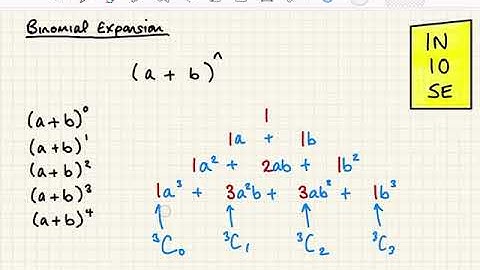 Binomial Expansion
IN
10
SE
(a + b)ⁿ
1
(a+b)⁰
1a + 1b
(a+b)¹
1a² + 2ab + 1b²
(a+b)²
1a³ + 3a²b + 3ab² + 1b³
(a+b)³
(a+b)⁴
³C₀ ³C₁ ³C₂ ³C₃